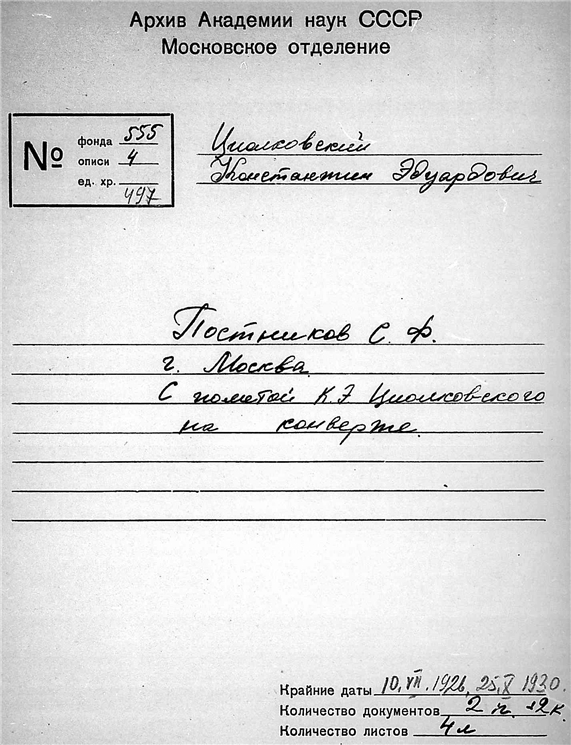 Архив Академии наук СССР
Московское отделение
№
фонда 555
описи 4
ед. хр. 497
Циолковский
Константин Эдуардович
Постников С. Ф.
г. Москва
С пометой К.Э Циолковского
на конверте.
Крайние даты 10.VII.1926, 25.X 1930.
Количество документов 2 п. +2к.
Количество листов 4л